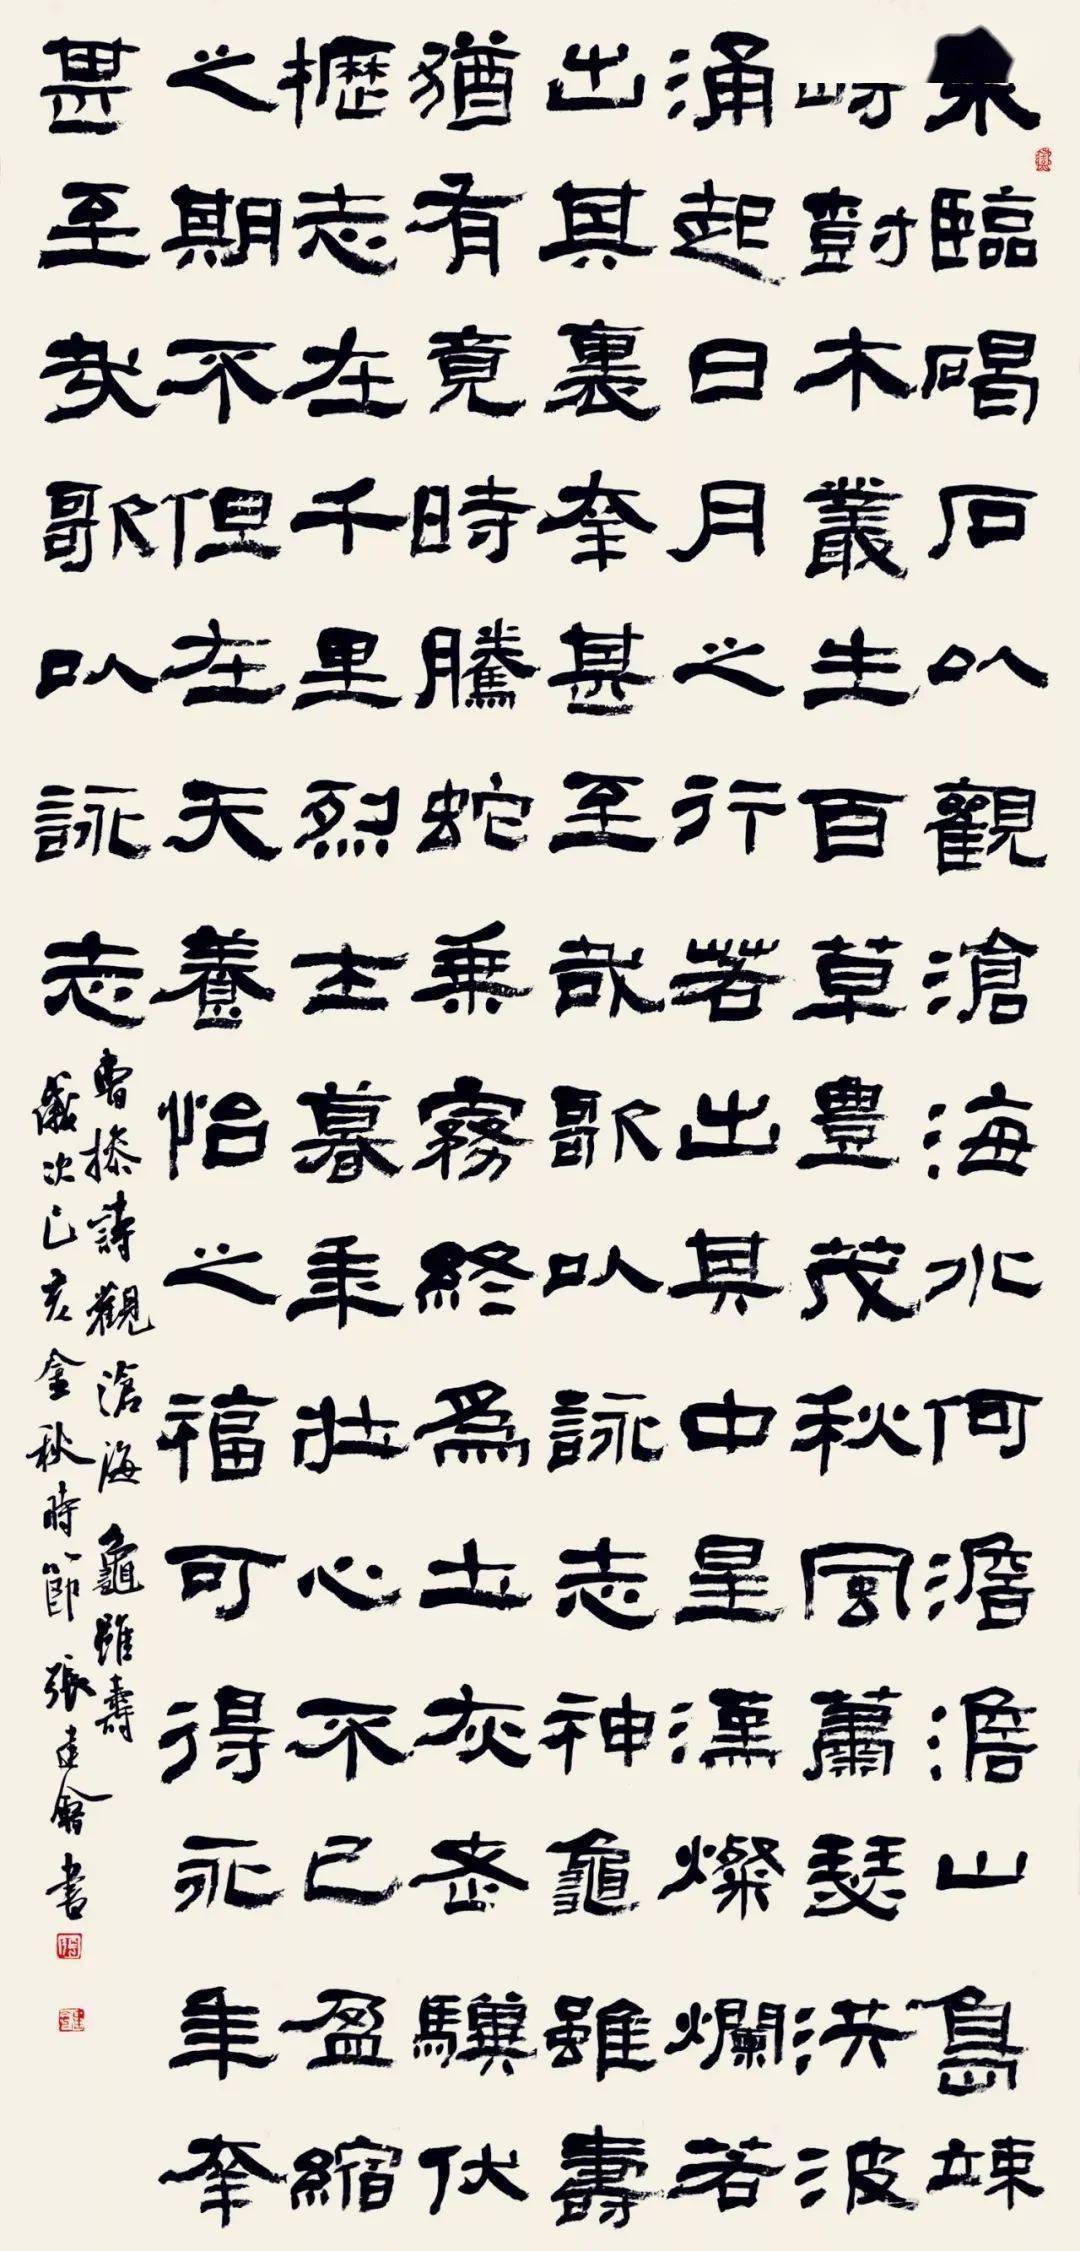 臨碣石以觀滄海水何澹澹山島竦
尌木叢生百草豊茂秋風蕭瑟洪波
涌起日月之行若出其中星漢燦爛若
出其裏幸甚至哉歌以詠志神龜雖壽
猶有竟時騰蛇乘霧終爲土灰老驥伏
櫪志在千里烈士暮年壯心不已盈縮
之期不但在天養怡之福可得永年幸
甚至哉歌以詠志
曹操詩觀滄海 龜雖壽
歲次己亥金秋時節 張建會書